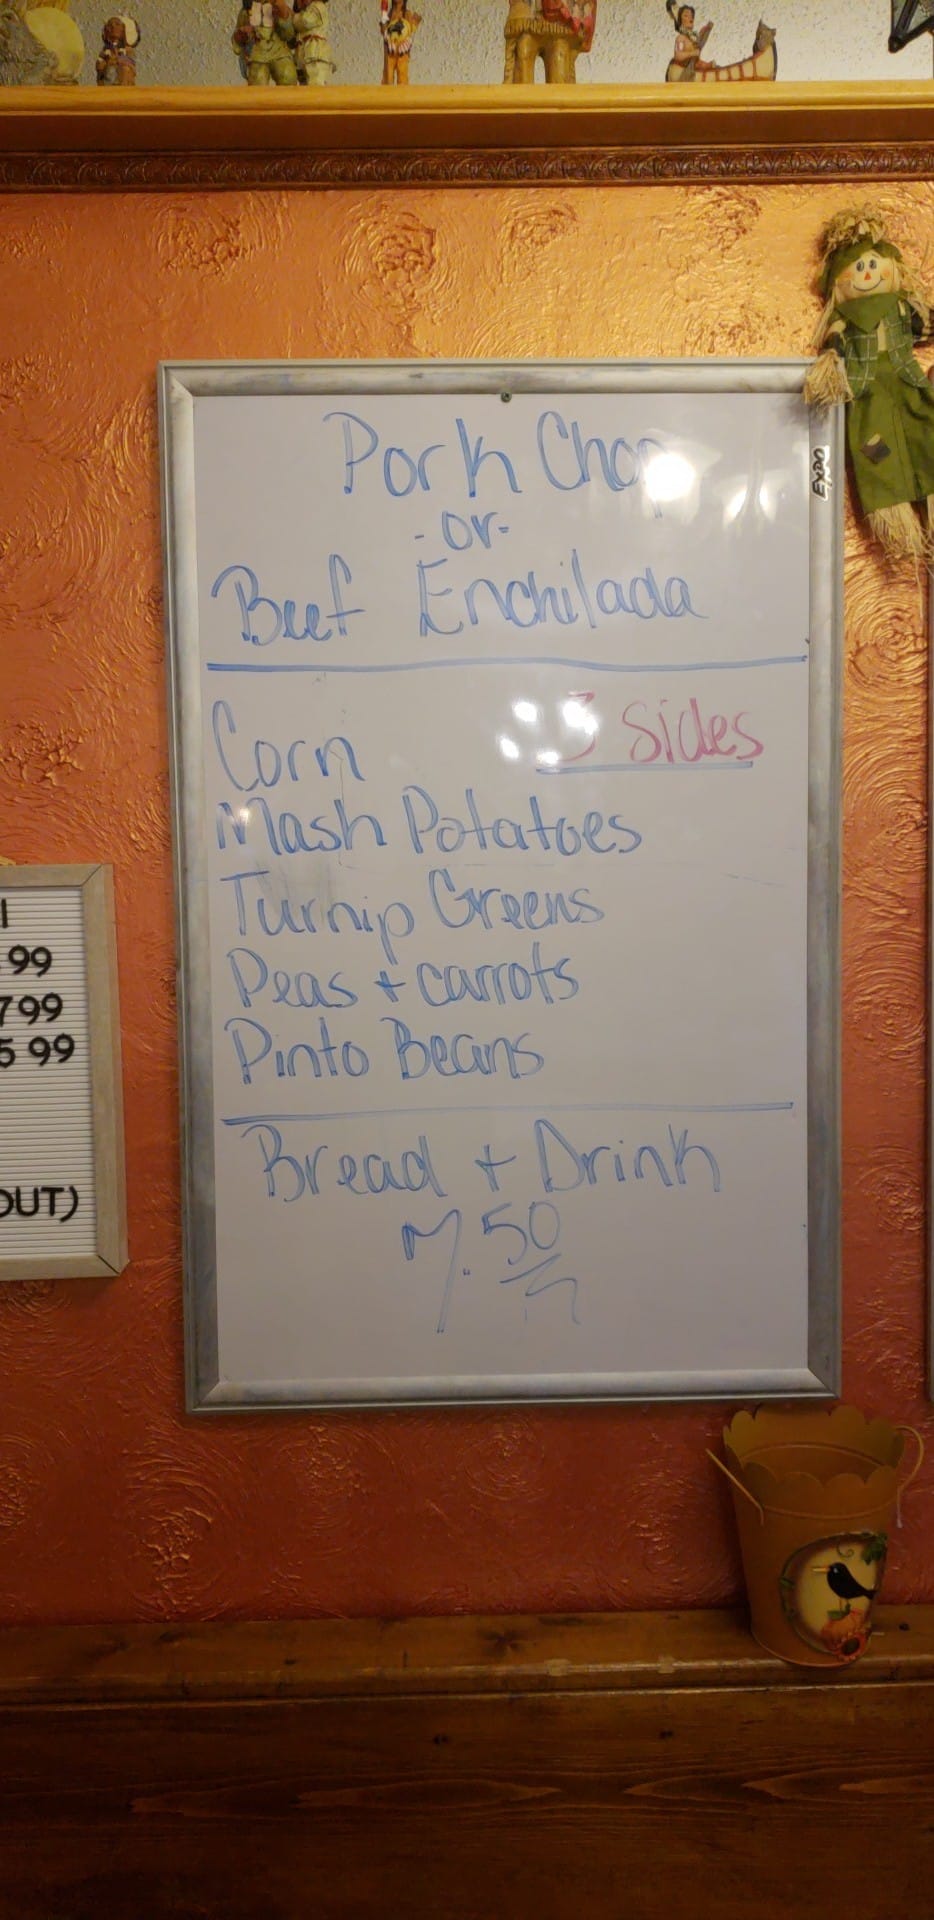 Pork Chop
-or-
Beef Enchilada
Corn
3 Sides
Mash Potatoes
Turnip Greens
Peas + carrots
Pinto Beans
Bread + Drink
7.50
EXPO
99
799
5 99
OUT)